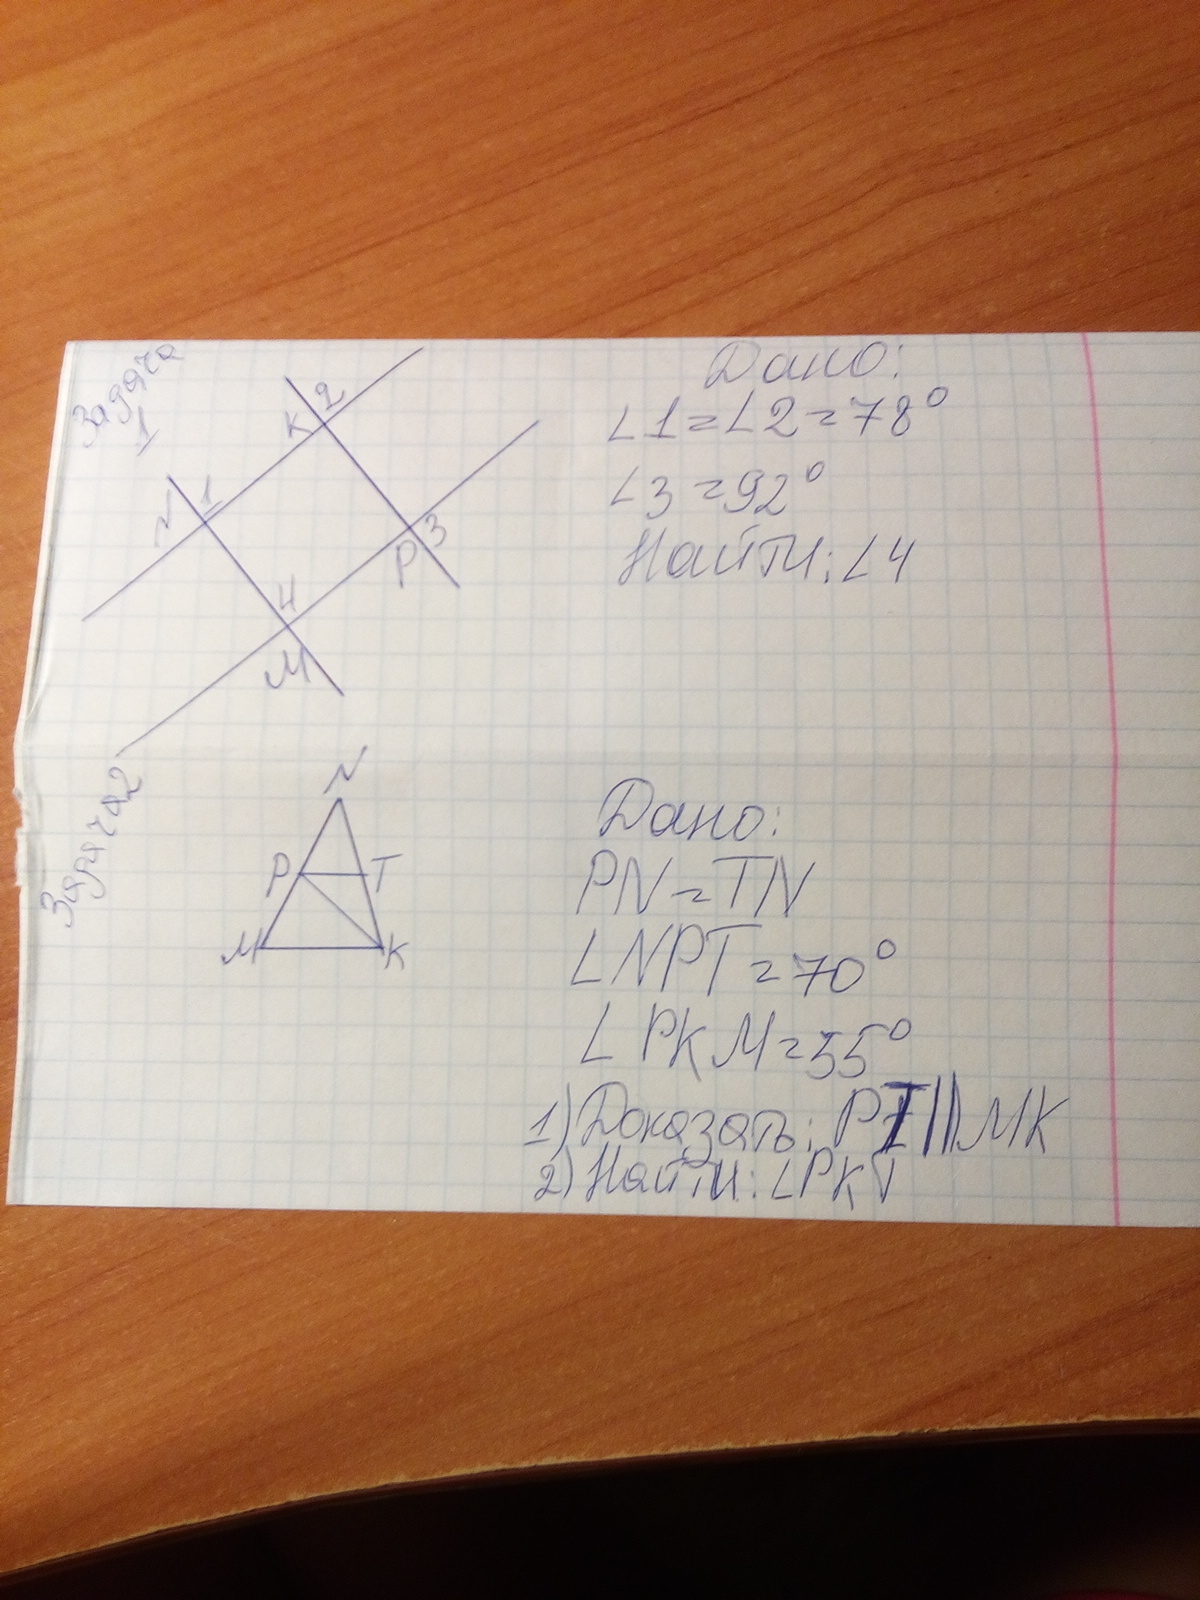 Задача
1
K
2
N
1
P
3
4
M
Дано:
∠1=∠2=78°
∠3=92°
Найти: ∠4
Задача 2
N
P
T
M
K
Дано:
PN=TN
∠NPT=70°
∠PKM=55°
1) Доказать: PT||MK
2) Найти: ∠PKT